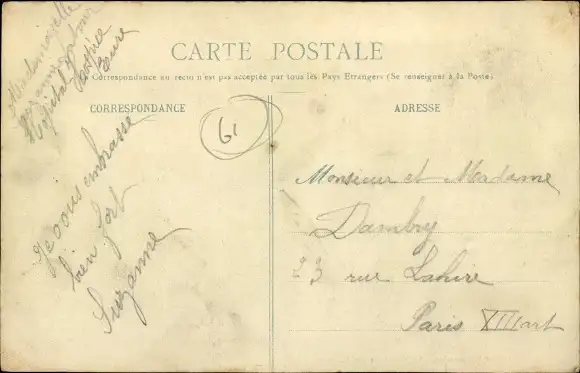 Mademoiselle
Suzanne
Hôpital
Hospice
Eure
CARTE POSTALE
La Correspondance au recto n'est pas acceptée par tous les Pays Etrangers (Se renseigner à la Poste)
CORRESPONDANCE
61
ADRESSE
Je vous embrasse
bien fort
Suzanne
Monsieur et Madame
Dambry
23 rue Lahire
Paris XIII art